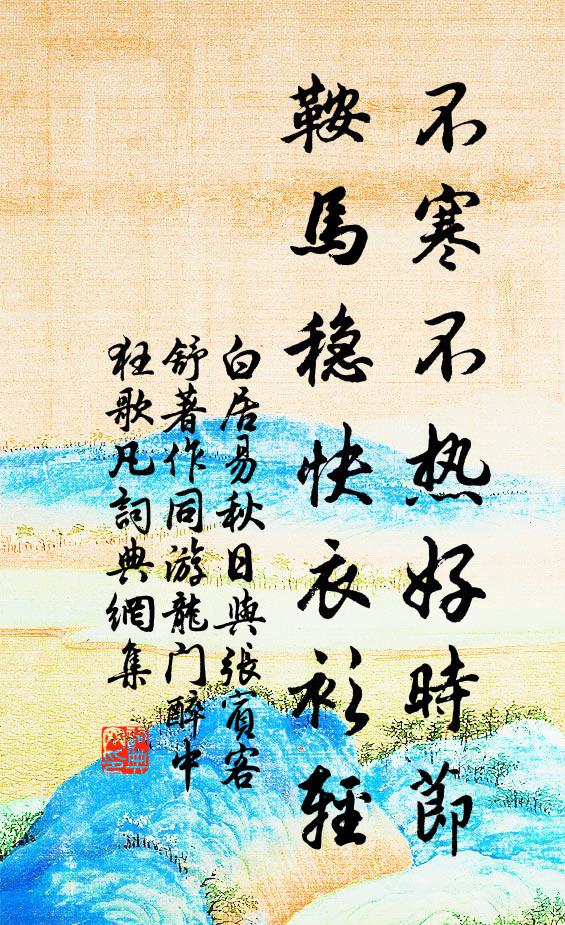 不寒不热好時節
鞍馬稳快衣衫輕
白居易秋日與張賓客
舒著作同游龍门醉中
狂歌凡詞典網集